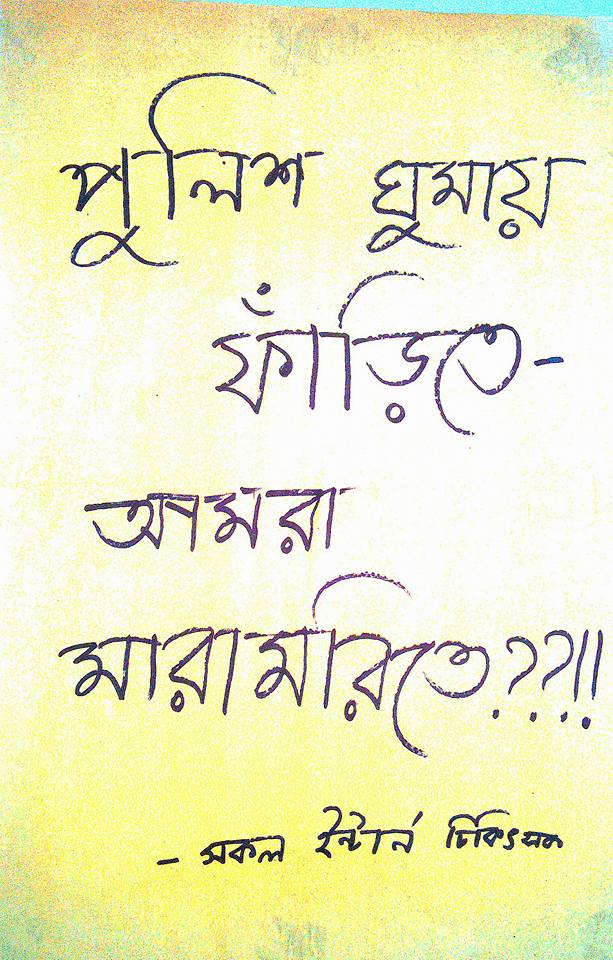 পুলিশ ঘুমায়
ফাঁড়িতে-
আমরা
মারামরিতে??!!
- সকল ইন্টার্ন চিকিৎসক